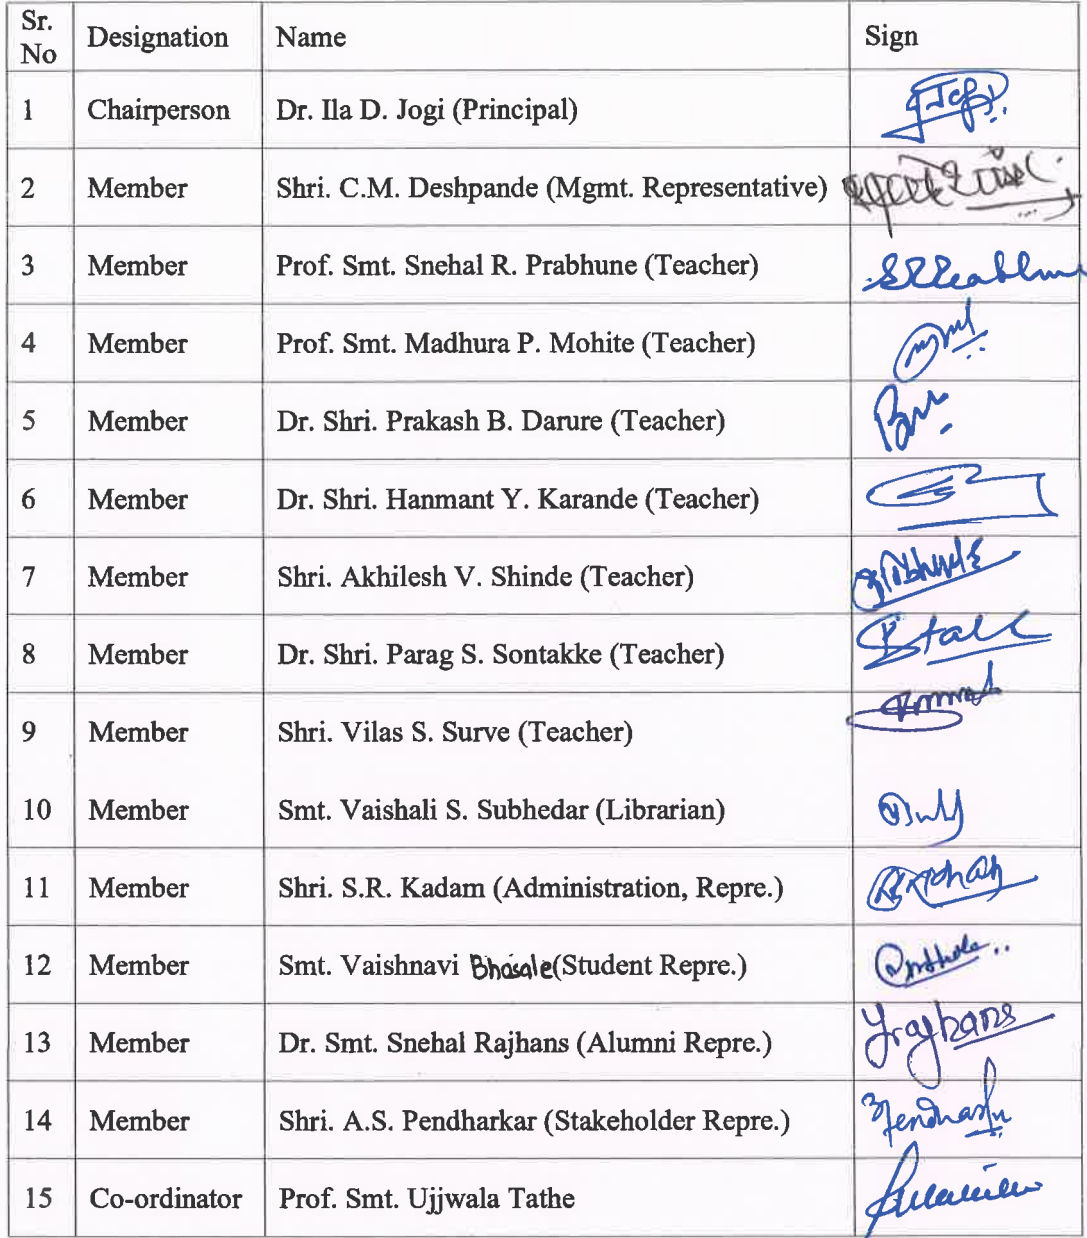 Sr. No Designation Name Sign
1 Chairperson Dr. Ila D. Jogi (Principal)
2 Member Shri. C.M. Deshpande (Mgmt. Representative)
3 Member Prof. Smt. Snehal R. Prabhune (Teacher)
4 Member Prof. Smt. Madhura P. Mohite (Teacher)
5 Member Dr. Shri. Prakash B. Darure (Teacher)
6 Member Dr. Shri. Hanmant Y. Karande (Teacher)
7 Member Shri. Akhilesh V. Shinde (Teacher)
8 Member Dr. Shri. Parag S. Sontakke (Teacher)
9 Member Shri. Vilas S. Surve (Teacher)
10 Member Smt. Vaishali S. Subhedar (Librarian)
11 Member Shri. S.R. Kadam (Administration, Repre.)
12 Member Smt. Vaishnavi Bhosale(Student Repre.)
13 Member Dr. Smt. Snehal Rajhans (Alumni Repre.)
14 Member Shri. A.S. Pendharkar (Stakeholder Repre.)
15 Co-ordinator Prof. Smt. Ujjwala Tathe